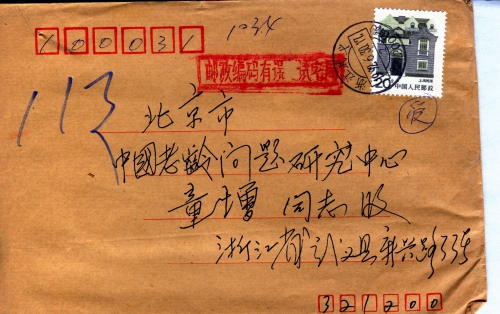 100031
1034
邮政编码有误 试投
20
上海民居
中国人民邮政
113
北京市
中國老龄问题研究中心
童增 同志 收
浙江省武义县新兴路33号
321200